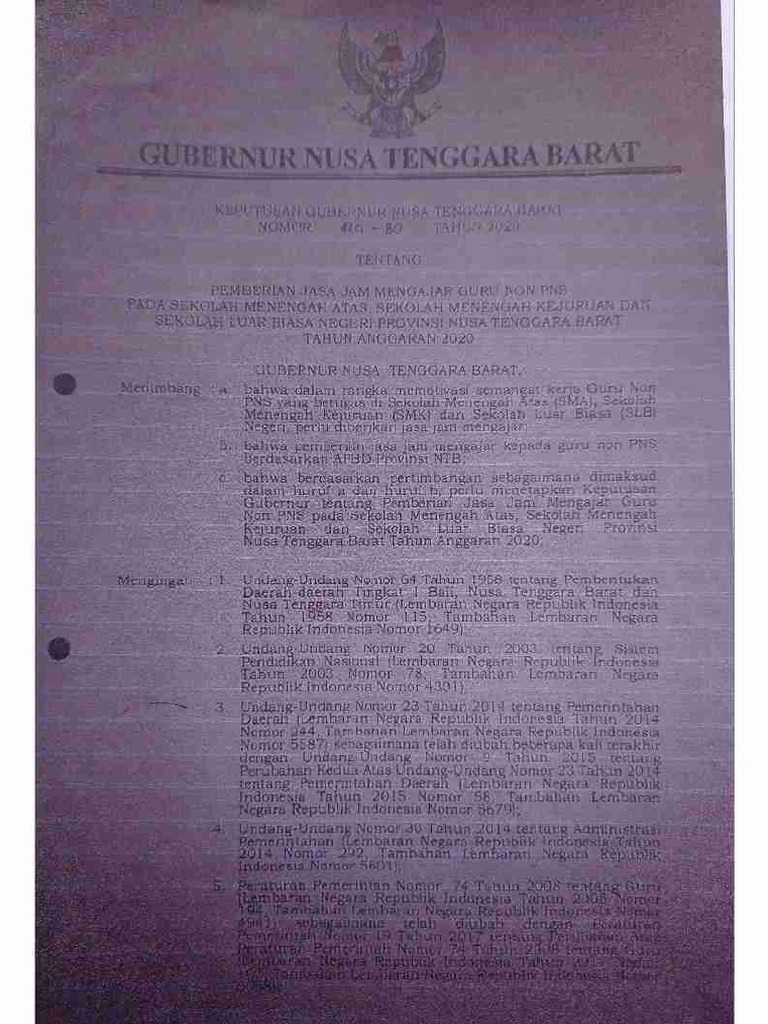 GUBERNUR NUSA TENGGARA BARAT
KEPUTUSAN GUBERNUR NUSA TENGGARA BARAT
NOMOR - 80 TAHUN 2020
TENTANG
PEMBERIAN JASA JAM MENGAJAR GURU NON PNS
PADA SEKOLAH MENENGAH ATAS, SEKOLAH MENENGAH KEJURUAN DAN
SEKOLAH LUAR BIASA NEGERI PROVINSI NUSA TENGGARA BARAT
TAHUN ANGGARAN 2020
GUBERNUR NUSA TENGGARA BARAT,
Menimbang : a. bahwa dalam rangka memotivasi semangat kerja Guru Non
PNS yang bertugas di Sekolah Menengah Atas (SMA), Sekolah
Menengah Kejuruan (SMK) dan Sekolah Luar Biasa (SLB)
Negeri, perlu diberikan jasa jam mengajar;
b. bahwa pemberian jasa jam mengajar kepada guru non PNS
Berdasarkan APBD Provinsi NTB;
c. bahwa berdasarkan pertimbangan sebagaimana dimaksud
dalam huruf a dan huruf b, perlu menetapkan Keputusan
Gubernur tentang Pemberian Jasa Jam Mengajar Guru
Non PNS pada Sekolah Menengah Atas, Sekolah Menengah
Kejuruan dan Sekolah Luar Biasa Negeri Provinsi
Nusa Tenggara Barat Tahun Anggaran 2020;
Mengingat : 1. Undang-Undang Nomor 64 Tahun 1958 tentang Pembentukan
Daerah-daerah Tingkat I Bali, Nusa Tenggara Barat dan
Nusa Tenggara Timur (Lembaran Negara Republik Indonesia
Tahun 1958 Nomor 115, Tambahan Lembaran Negara
Republik Indonesia Nomor 1649);
2. Undang-Undang Nomor 20 Tahun 2003 tentang Sistem
Pendidikan Nasional (Lembaran Negara Republik Indonesia
Tahun 2003 Nomor 78, Tambahan Lembaran Negara
Republik Indonesia Nomor 4301);
3. Undang-Undang Nomor 23 Tahun 2014 tentang Pemerintahan
Daerah (Lembaran Negara Republik Indonesia Tahun 2014
Nomor 244, Tambahan Lembaran Negara Republik Indonesia
Nomor 5587) sebagaimana telah diubah beberapa kali terakhir
dengan Undang-Undang Nomor 9 Tahun 2015 tentang
Perubahan Kedua Atas Undang-Undang Nomor 23 Tahun 2014
tentang Pemerintahan Daerah (Lembaran Negara Republik
Indonesia Tahun 2015 Nomor 58, Tambahan Lembaran
Negara Republik Indonesia Nomor 5679);
4. Undang-Undang Nomor 30 Tahun 2014 tentang Administrasi
Pemerintahan (Lembaran Negara Republik Indonesia Tahun
2014 Nomor 292, Tambahan Lembaran Negara Republik
Indonesia Nomor 5601);
5. Peraturan Pemerintah Nomor 74 Tahun 2008 tentang Guru
(Lembaran Negara Republik Indonesia Tahun 2008 Nomor
194, Tambahan Lembaran Negara Republik Indonesia Nomor
4941) sebagaimana telah diubah dengan Peraturan
Pemerintah Nomor 19 Tahun 2017 tentang Perubahan Atas
Peraturan Pemerintah Nomor 74 Tahun 2008 tentang Guru
(Lembaran Negara Republik Indonesia Tahun Nomor
Tambahan Lembaran Negara Republik Indonesia Nomor